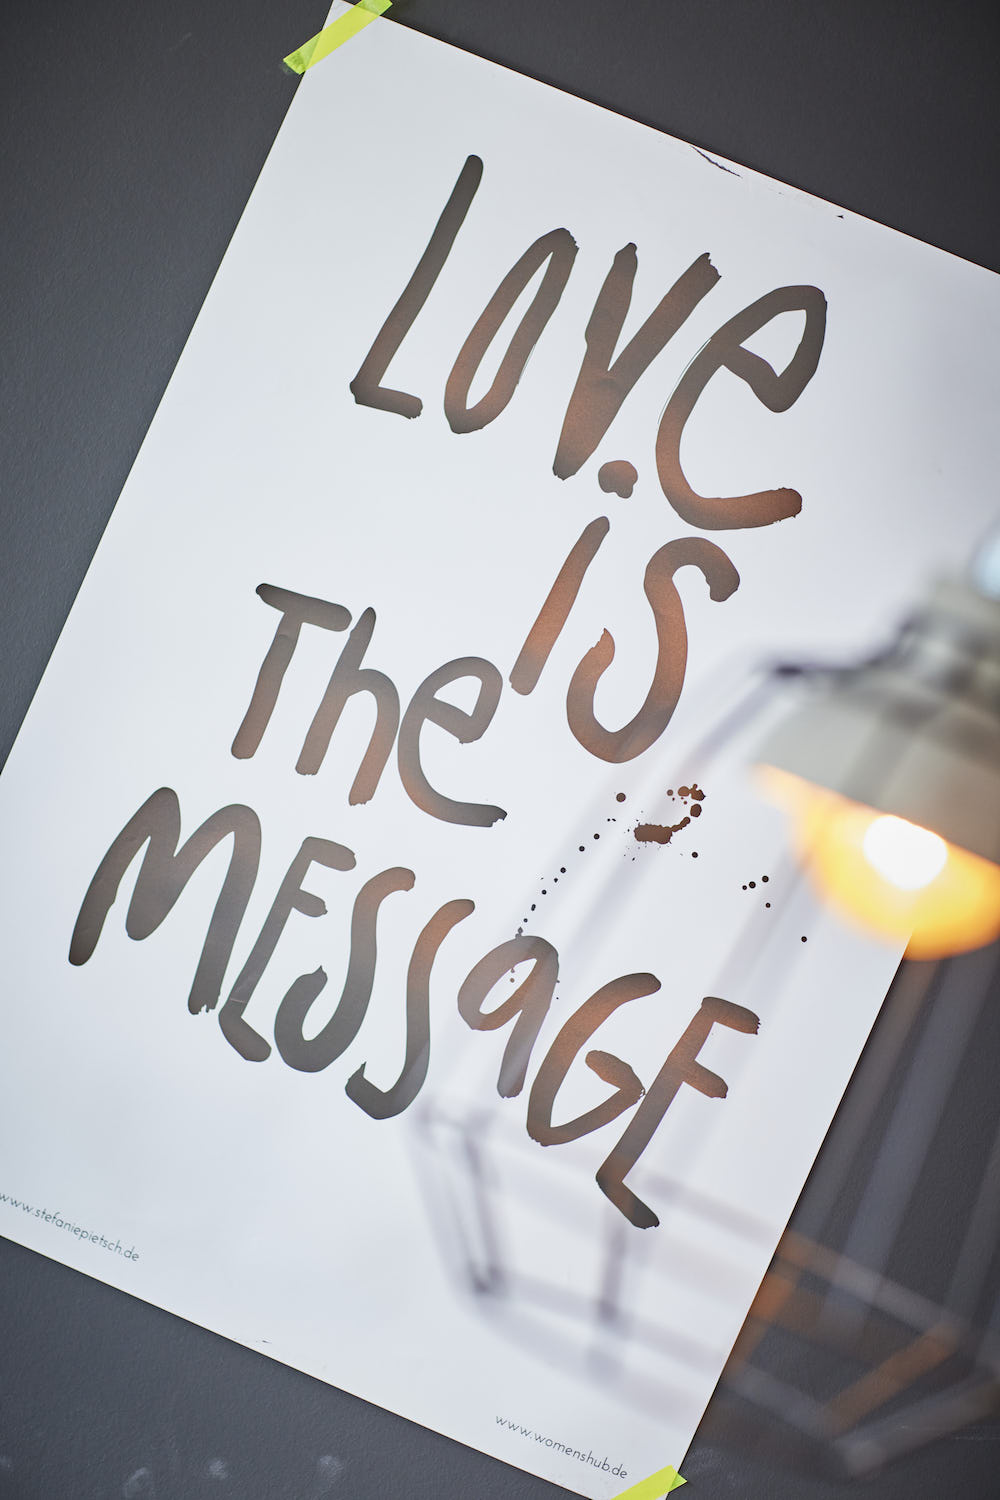 Love
is
The
MESSaGE
www.stefaniepietsch.de
www.womenshub.de